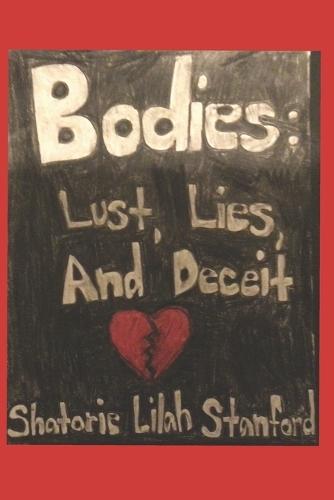 Bodies:
Lust, Lies,
And Deceit
Shatoric Lilah Stanford